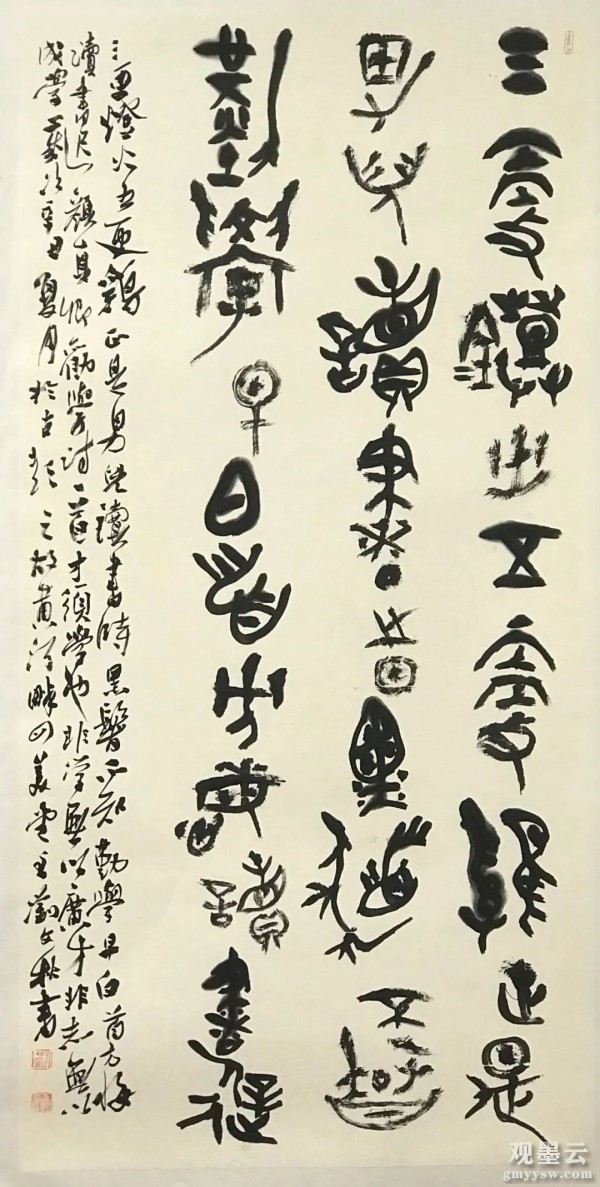 三更鐙火五更雞正是
男兒讀書時黑髮不知
勤學早白首方悔讀書遲
三更燈火五更鷄正是男兒讀書時黑髮不知勤學早白首方悔
讀書遲顏真卿勸學詩一首才須學也非學無以廣才非志無以
成學辛丑夏月於古之故黄河畔四美堂主劉文秋書
观墨云
gmyysw.com